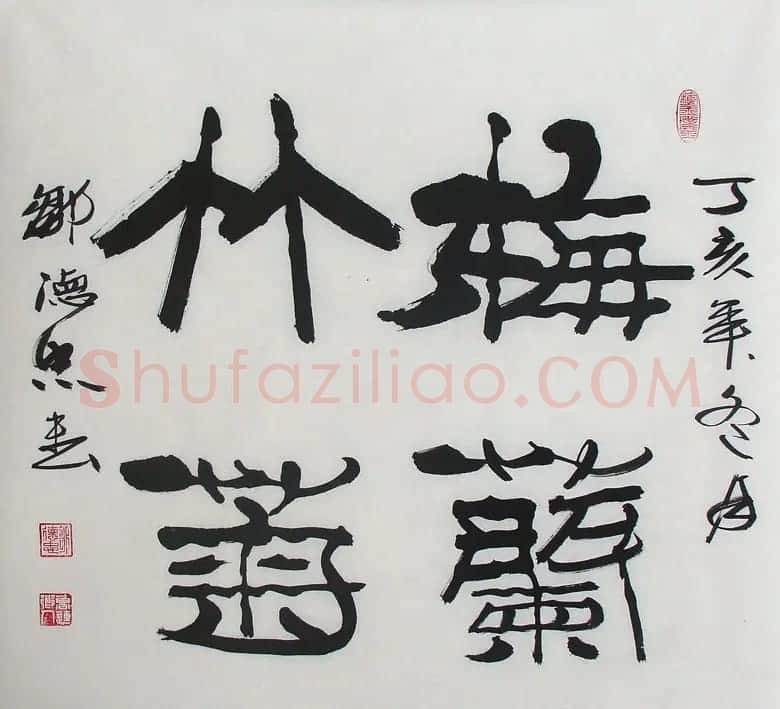 丁亥年冬月
梅蘭
竹菊
鄒德忠書
Shufaziliao.COM